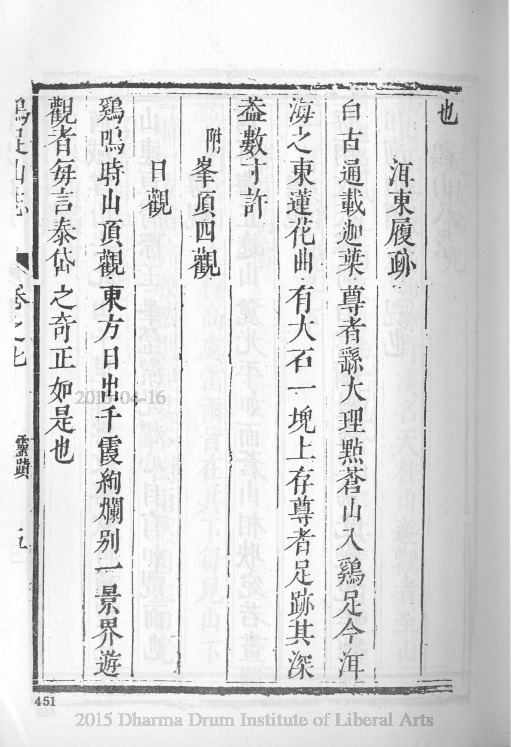 也
洱東履跡
白古通載迦葉尊者繇大理點蒼山入鷄足今洱
海之東蓮花曲有大石一塊上存尊者足跡其深
葢數寸許
附峯頂四觀
日觀
鷄鳴時山頂觀東方日出千霞絢爛别一景界遊
觀者每言泰岱之奇正如是也
鷄足山志 卷之七 靈蹟 五
451
2015 Dharma Drum Institute of Liberal Arts